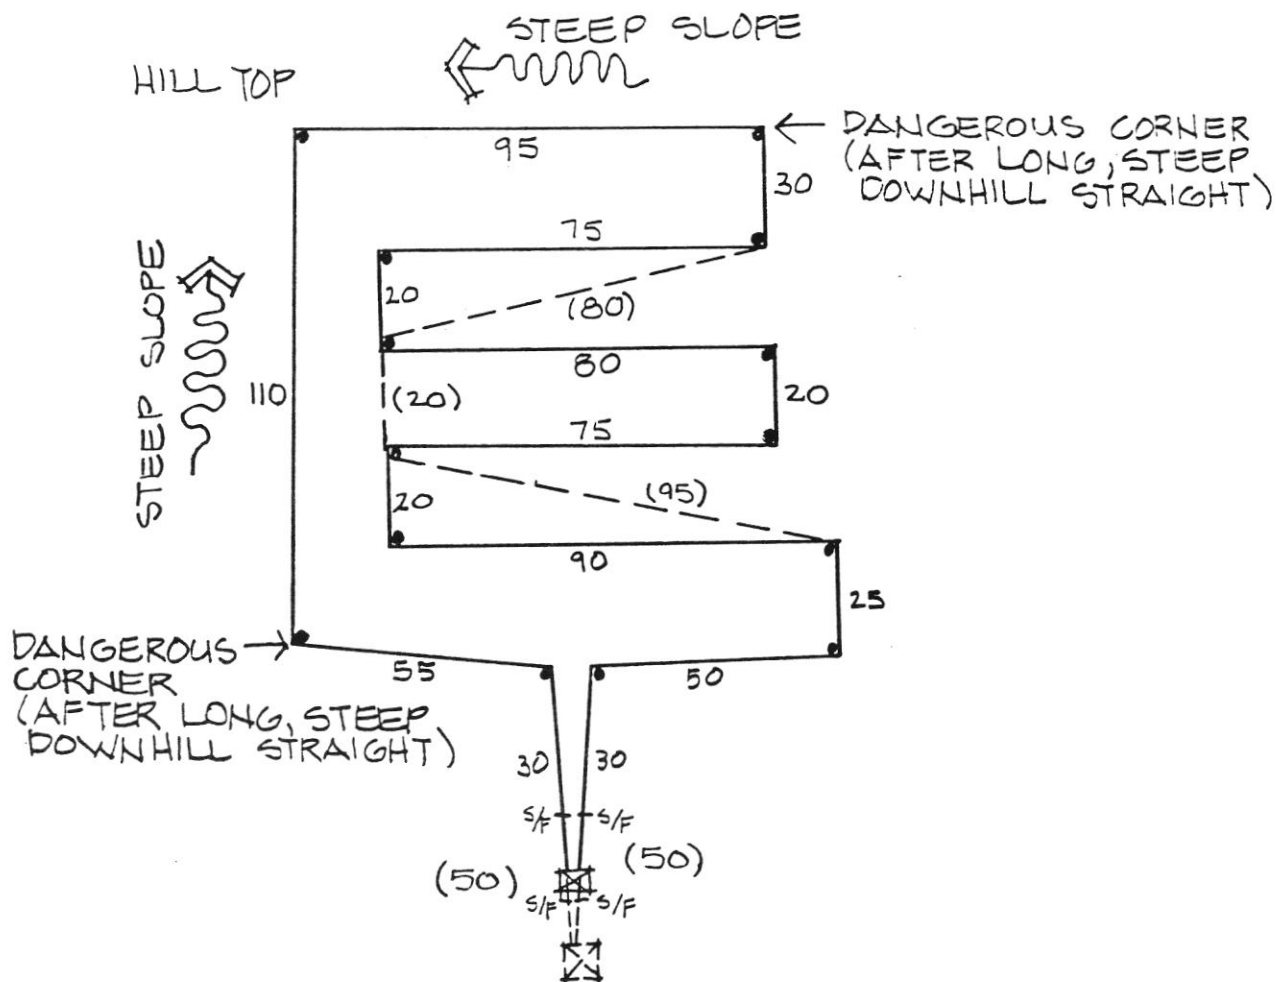 STEEP SLOPE
HILL TOP
95
DANGEROUS CORNER
(AFTER LONG, STEEP
DOWNHILL STRAIGHT)
30
75
STEEP SLOPE
20
(80)
80
110
(20)
20
75
20
(95)
90
25
DANGEROUS
CORNER
(AFTER LONG, STEEP
DOWNHILL STRAIGHT)
55
50
30
30
S/F
S/F
(50)
(50)
S/F
S/F